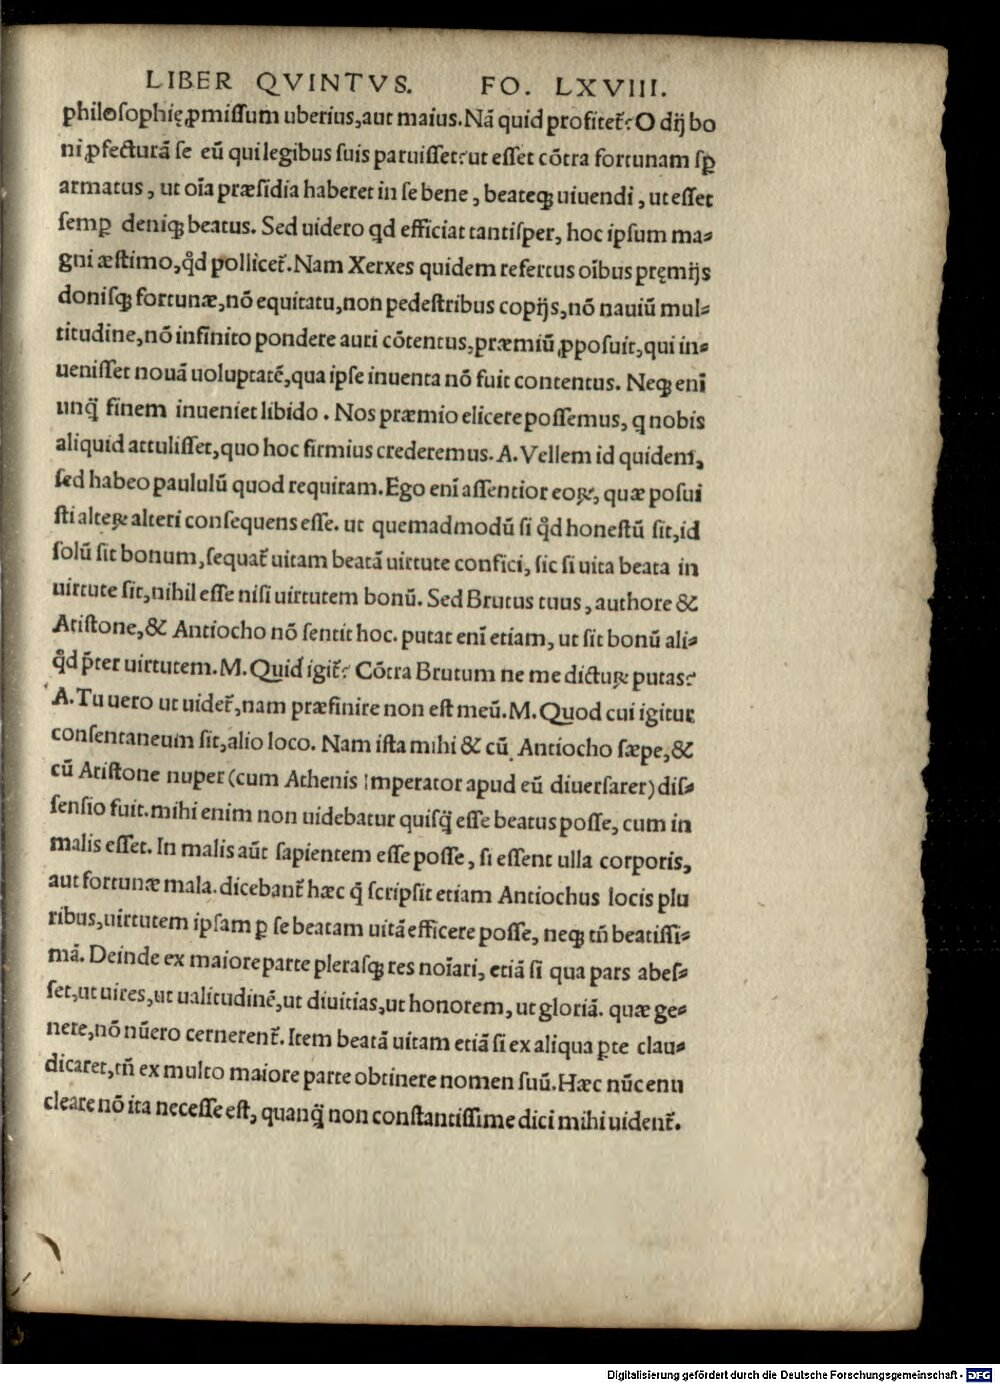 LIBER QVINTVS. FO. LXVIII.
philoſophię ꝓmiſſum uberius, aut maius. Nã quid profitet᷑? O dĳ bo
ni ꝓfecturã ſe eũ qui legibus ſuis paruiſſet: ut eſſet cõtra fortunam ſꝑ
armatus, ut oĩa præſidia haberet in ſe bene, beateqꝫ uiuendi, ut eſſet
ſemꝑ deniqꝫ beatus. Sed uidero qd efficiat tantiſper, hoc ipſum ma⸗
gni æſtimo, qd̃ pollicet᷑. Nam Xerxes quidem refertus oĩbus pręmĳs
doniſqꝫ fortunæ, nõ equitatu, non pedeſtribus copĳs, nõ nauiũ mul⸗
titudine, nõ infinito pondere auri cõtentus, præmiũ ꝓpoſuit, qui in⸗
ueniſſet nouã uoluptatẽ, qua ipſe inuenta nõ fuit contentus. Neqꝫ enĩ
unq̃ finem inueniet libido. Nos præmio elicere poſſemus, q nobis
aliquid attuliſſet, quo hoc firmius crederemus. A. Vellem id quidem,
ſed habeo paululũ quod requiram. Ego enĩ aſſentior eoꝝ, quæ poſui
ſti alteꝝ alteri conſequens eſſe. ut quemadmodũ ſi qd̃ honeſtũ ſit, id
ſolũ ſit bonum, ſequat᷑ uitam beatã uirtute confici, ſic ſi uita beata in
uirtute ſit, nihil eſſe niſi uirtutem bonũ. Sed Brutus tuus, authore &
Ariſtone, & Antiocho nõ ſentit hoc. putat enĩ etiam, ut ſit bonũ ali⸗
qd̃ p̃ter uirtutem. M. Quid igit᷑? Cõtra Brutum ne me dictuꝝ putas?
A. Tu uero ut uidet᷑, nam præfinire non eſt meũ. M. Quod cui igitur
conſentaneum ſit, alio loco. Nam iſta mihi & cũ Antiocho ſæpe, &
cũ Ariſtone nuper (cum Athenis Imperator apud eũ diuerſarer) diſ⸗
ſenſio fuit. mihi enim non uidebatur quiſq̃ eſſe beatus poſſe, cum in
malis eſſet. In malis aũt ſapientem eſſe poſſe, ſi eſſent ulla corporis,
aut fortunæ mala. dicebant᷑ hæc q̃ ſcripſit etiam Antiochus locis plu
ribus, uirtutem ipſam ꝑ ſe beatam uitã efficere poſſe, neqꝫ tñ beatiſſi⸗
mã. Deinde ex maiore parte pleraſqꝫ res noĩari, etiã ſi qua pars abeſ⸗
ſet, ut uires, ut ualitudinẽ, ut diuitias, ut honorem, ut gloriã. quæ ge⸗
nere, nõ nũero cernerent᷑. Item beatã uitam etiã ſi ex aliqua ꝑte clau⸗
dicaret, tñ ex multo maiore parte obtinere nomen ſuũ. Hæc nũc enu
cleare nõ ita neceſſe eſt, quanq̃ non conſtantiſſime dici mihi uident᷑.
Digitalisierung gefördert durch die Deutsche Forschungsgemeinschaft - DFG